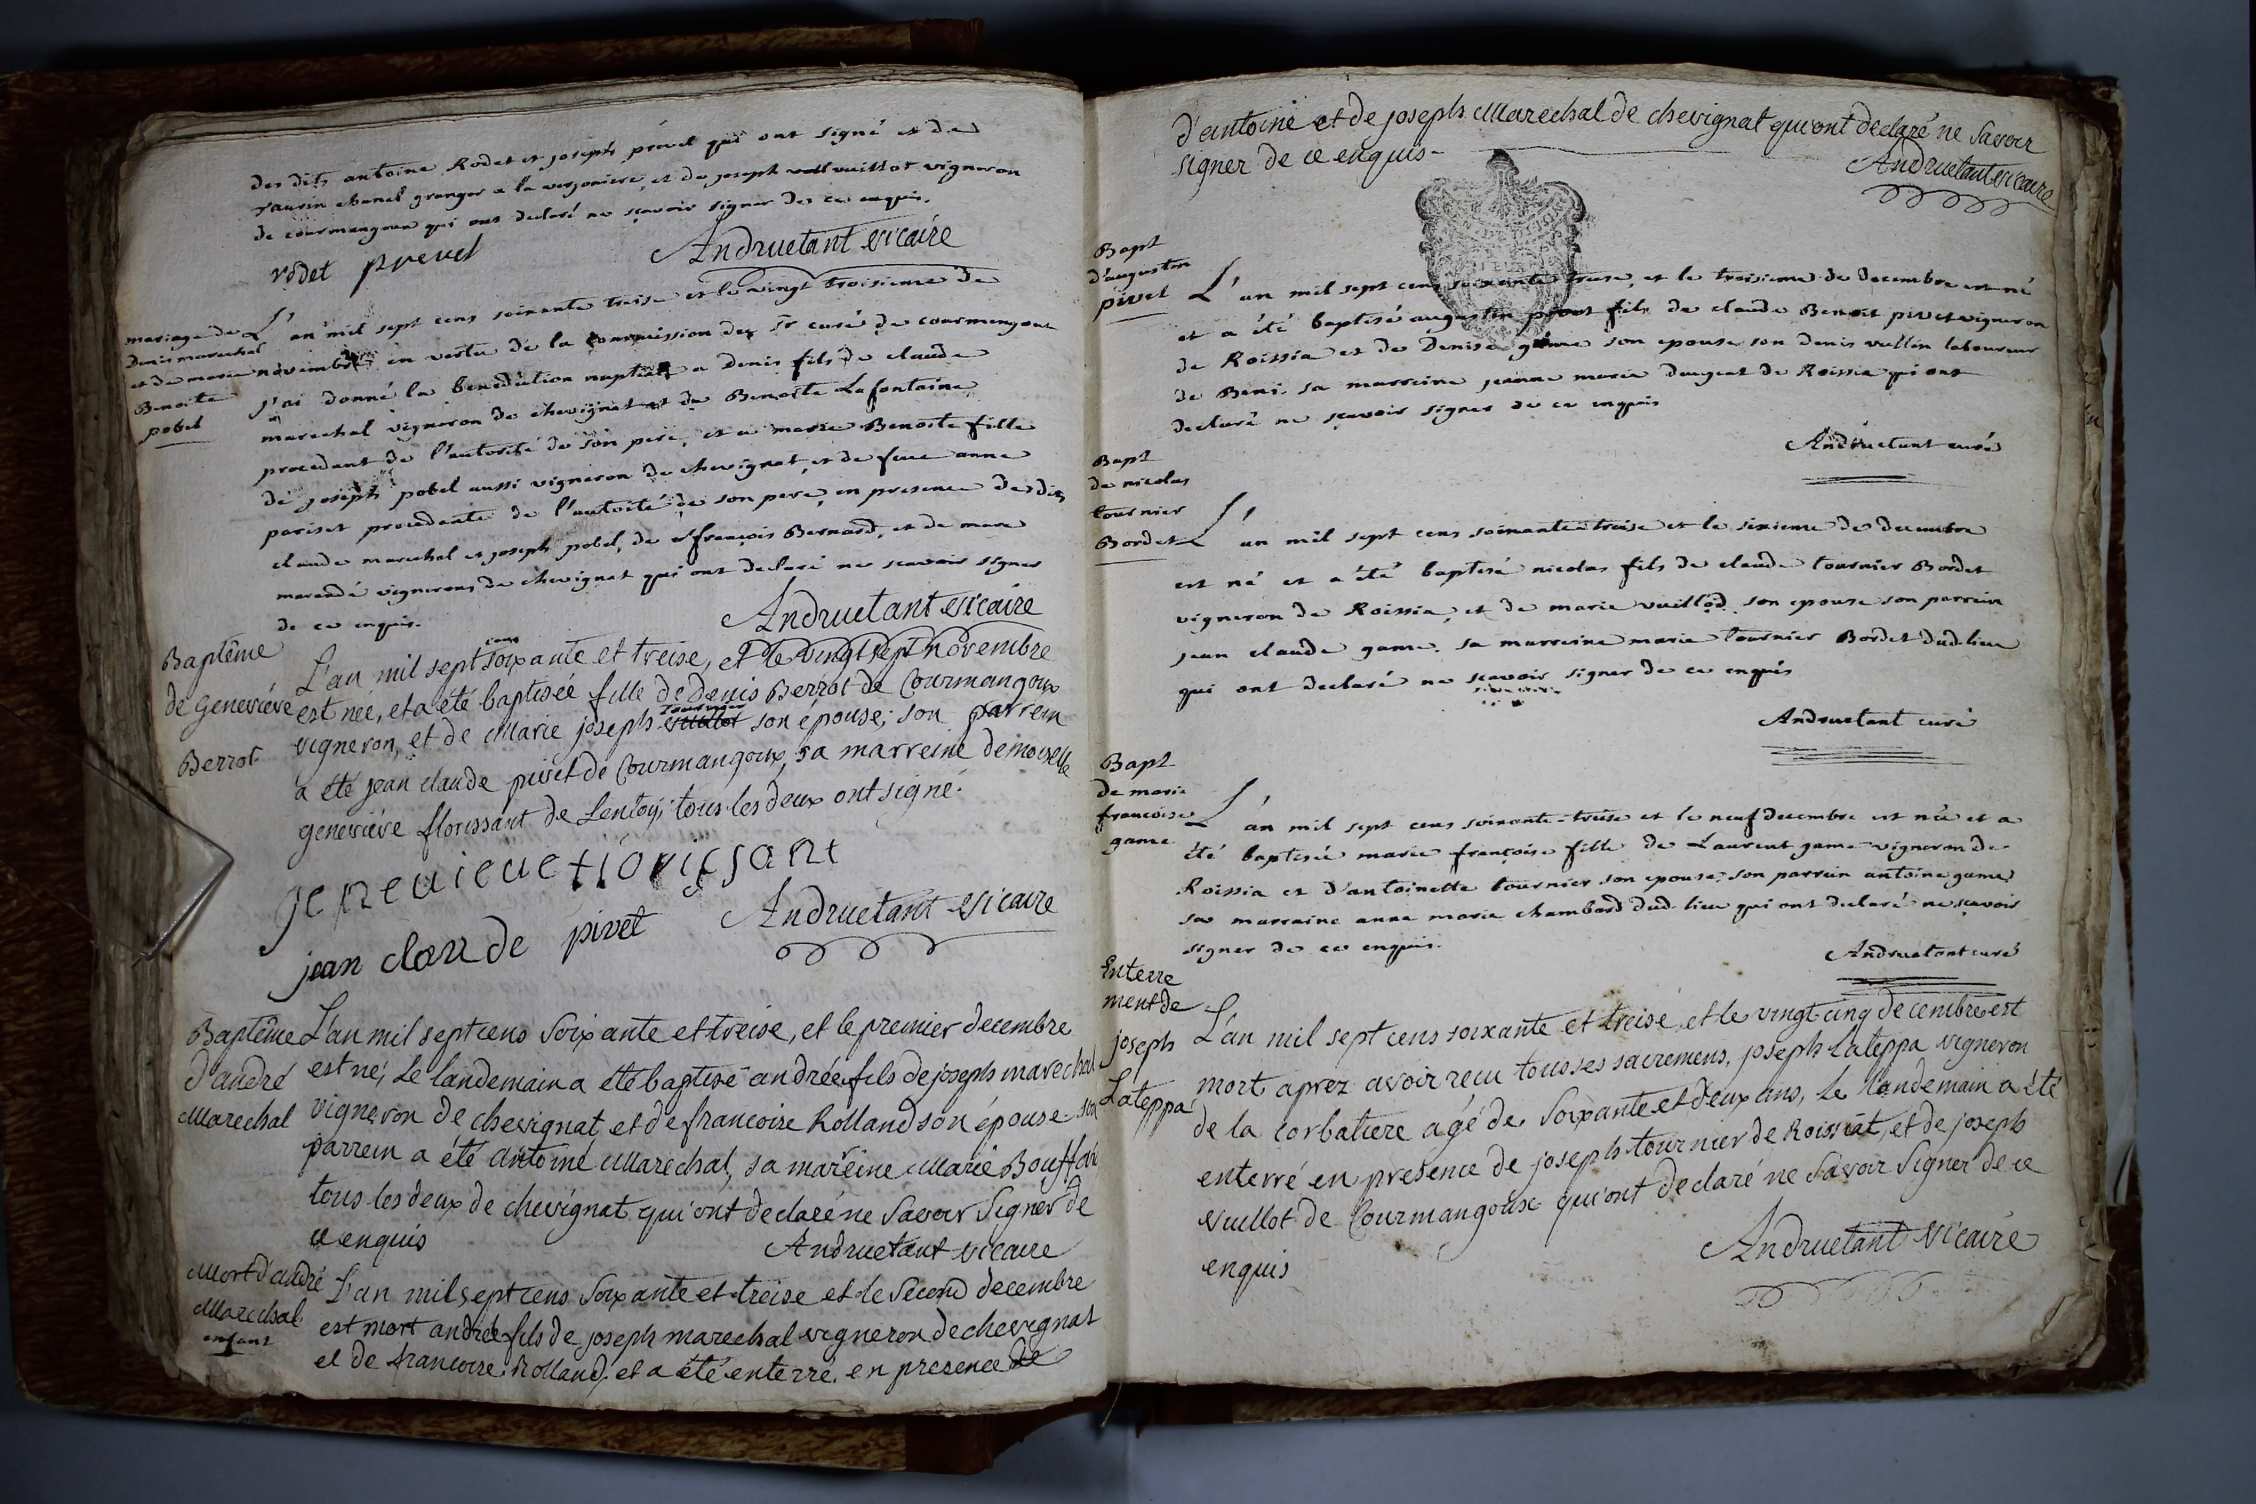 des dits antoine Rodet et joseph prevel qui ont signé et de
granger a la verjoniere, et de joseph vuillot vigneron
de courmangoux qui ont declaré ne sçavoir signer de ce enquis.
rodet prevel
Andruetant vicaire
mariage de
denis marechal
et de marie
Benoite
pobel
L'an mil sept cens soixante treise et le vingt troisieme de
novembre en vertu de la commission de Sr curé de courmangoux
j'ai donné la benediction nuptiale a Denis fils de claude
marechal vigneron de chevignat et de Benoite Lafontaine
procedant de l'autorité de son pere, et a marie Benoite fille
de joseph pobel aussi vigneron de chevignat, et de feue anne
pariset procedante de l'autorité de son pere, en presence des dits
claude marechal et joseph pobel, de françois Bernard, et de
vignerons de chevignat qui ont declaré ne sçavoir signer
de ce enquis.
Andruetant vicaire
Baptême
de Genevieve
Berrot
L'an mil sept cens soixante et treise, et le vingt sept novembre
est née, et a été baptisée fille de Denis Berrot de Courmangoux
vigneron, et de Marie joseph vuillot tournier son épouse; son parrein
a été jean claude pivet de Courmangoux, sa marreine demoiselle
genevieve florissant de Lentoy; tous les deux ont signé.
genevieve florissant
jean claude pivet
Andruetant vicaire
Baptême
d'andré
Marechal
L'an mil sept cens soixante et treise, et le premier decembre
est né, Le landemain a été baptisé andrée fils de joseph marechal
vigneron de chevignat et de francoise Rolland son épouse son
parrein a été antoine Marechal, sa mareine Marie Bouffard
tous les deux de chevignat qui ont declaré ne Savoir Signer de
ce enquis
Andruetant vicaire
Mort d'andré
Marechal
enfant
L'an mil sept cens soixante et treise et le Second decembre
est mort andrée fils de joseph marechal vigneron de chevignat
et de francoise Rolland, et a été enterré, en presence de
d'antoine et de joseph Marechal de chevignat qui ont declaré ne Savoir
signer de ce enquis
Andruetant vicaire
Bapt
d'augustin
pivet
L'an mil sept cens soixante treise, et le troisieme de decembre est né
et a été baptisé augustin pivet fils de claude Benoit pivet vigneron
de Roissia et de Denise game son epouse son denis vullin laboureur
de Beni, sa marreine jeanne marie de Roissia qui ont
declaré ne sçavoir signer de ce enquis
Andruetant curé
Bapt
de nicolas
tournier
Bordet
L'an mil sept cens soixante-treise et le sixieme de decembre
est né et a été baptisé nicolas fils de claude tournier Bordet
vigneron de Roissia, et de marie vuillod son epouse son parrein
jean claude game, sa marreine marie tournier Bordet dud. lieu
qui ont declaré ne sçavoir signer de ce enquis
Andruetant curé
Bapt
de marie
françoise
game
L'an mil sept cens soixante-treise et le neuf decembre est née et a
été baptisée marie françoise fille de Laurent game vigneron de
Roissia et d'antoinette tournier son epouse, son parrein antoine game,
sa marraine anne marie chambard dud. lieu qui ont declaré ne sçavoir
signer de ce enquis.
Andruetant curé
Enterre
ment de
joseph
Lateppa
L'an mil sept cens soixante et treise, et le vingt cinq decembre est
mort aprez avoir recu tous ses sacremens, joseph Lateppa vigneron
de la corbatiere agé de soixante et deux ans, Le landemain a été
enterré en presence de joseph tournier de Roissiat, et de joseph
vuillot de Courmangoux qui ont declaré ne Savoir Signer de ce
enquis
Andruetant vicaire